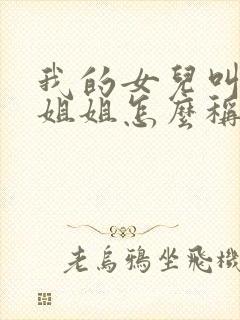 我的女兒叫
姐姐怎麼稱
老烏鴉坐飛機